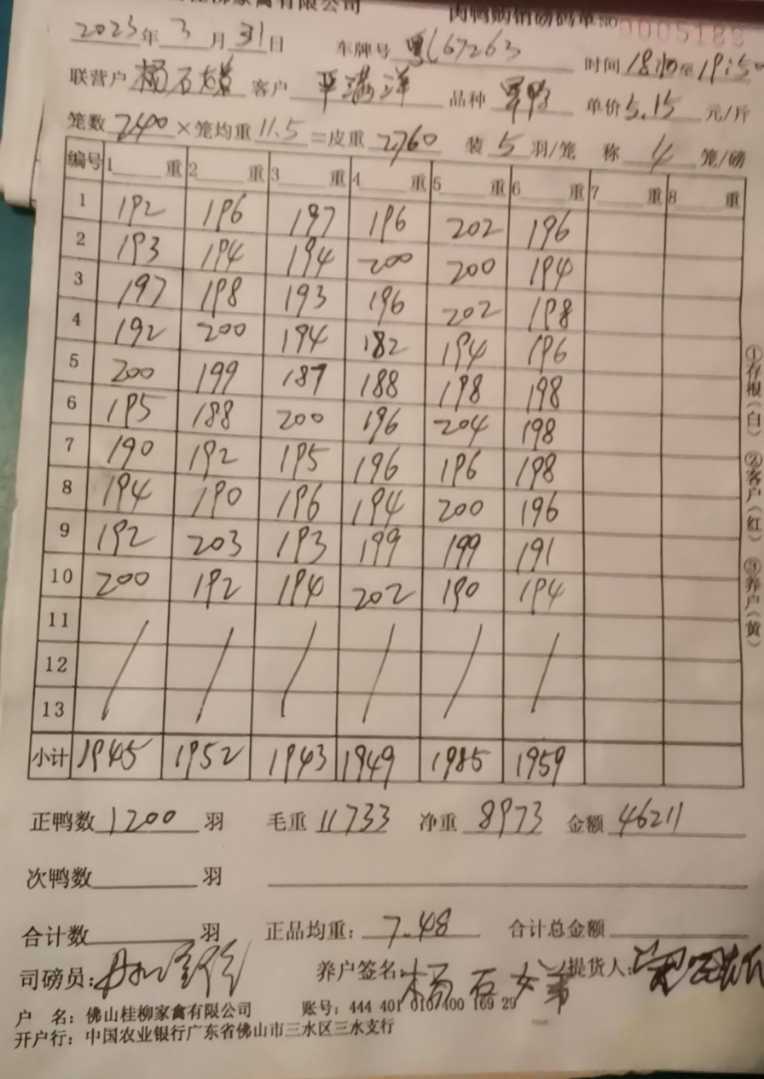 桂柳家禽有限公司 肉鸭购销磅码单 NO 0005188
2023年3月31日 车牌号 粤L67263 时间 18:10至19:50
联营户 杨石娣 客户 平满洋 品种 单价 5.15 元/斤
笼数 240 × 笼均重 11.5 = 皮重 2760 装 5 羽/笼 称 4 笼/磅
编号 1 重 2 重 3 重 4 重 5 重 6 重 7 重 8 重
1 192 196 197 196 202 196
2 193 194 194 200 200 194
3 197 198 193 196 202 198
4 192 200 194 182 194 196
5 200 199 187 188 198 198
6 195 188 200 196 204 198
7 190 192 195 196 196 198
8 194 190 196 194 200 196
9 192 203 193 199 199 191
10 200 192 194 202 190 194
11
12
13
小计 1945 1952 1943 1949 1985 1959
正鸭数 1200 羽 毛重 11733 净重 8973 金额 46211
次鸭数 羽
合计数 羽 正品均重: 7.48 合计总金额
司磅员: 养户签名: 杨石娣 提货人:
户 名: 佛山桂柳家禽有限公司 账号: 444 401 0107400 169 29
开户行: 中国农业银行广东省佛山市三水区三水支行
①存根(白) ②客户(红) ③养户(黄)